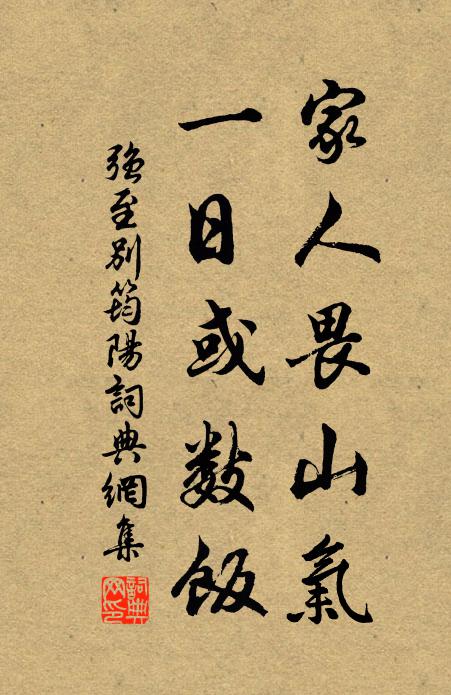 家人畏山氣
一日或數飯
強至別筠陽詞典網集
詞典網印